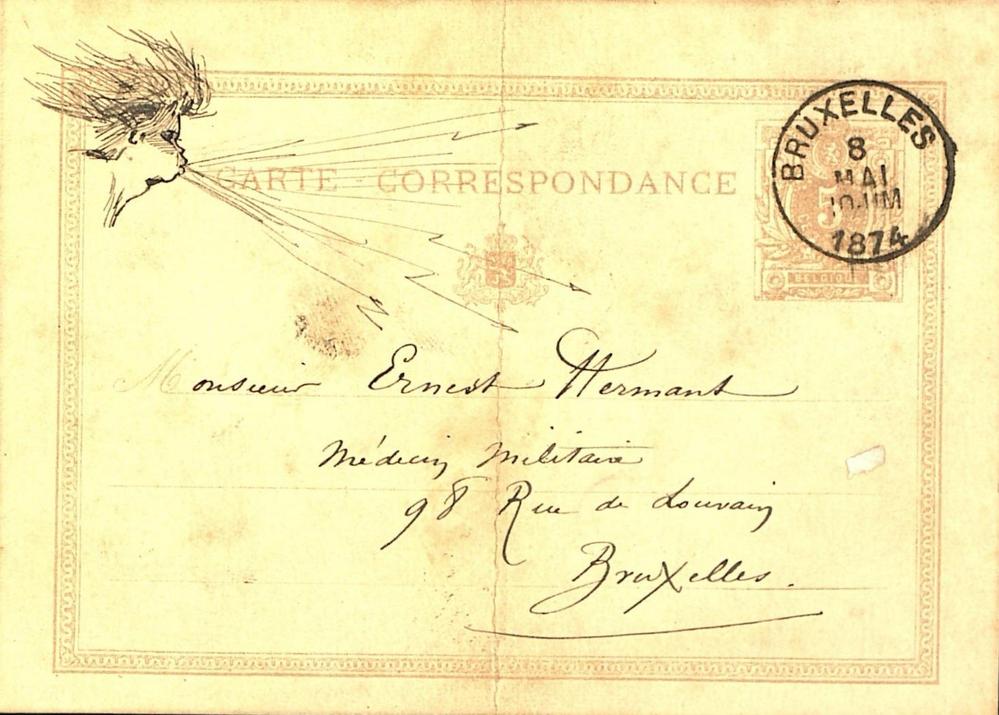 CARTE CORRESPONDANCE
BRUXELLES
8
MAI
1874
5
BELGIQUE
Monsieur Ernest Hermant
Médecin Militaire
98 Rue de Louvain
Bruxelles.